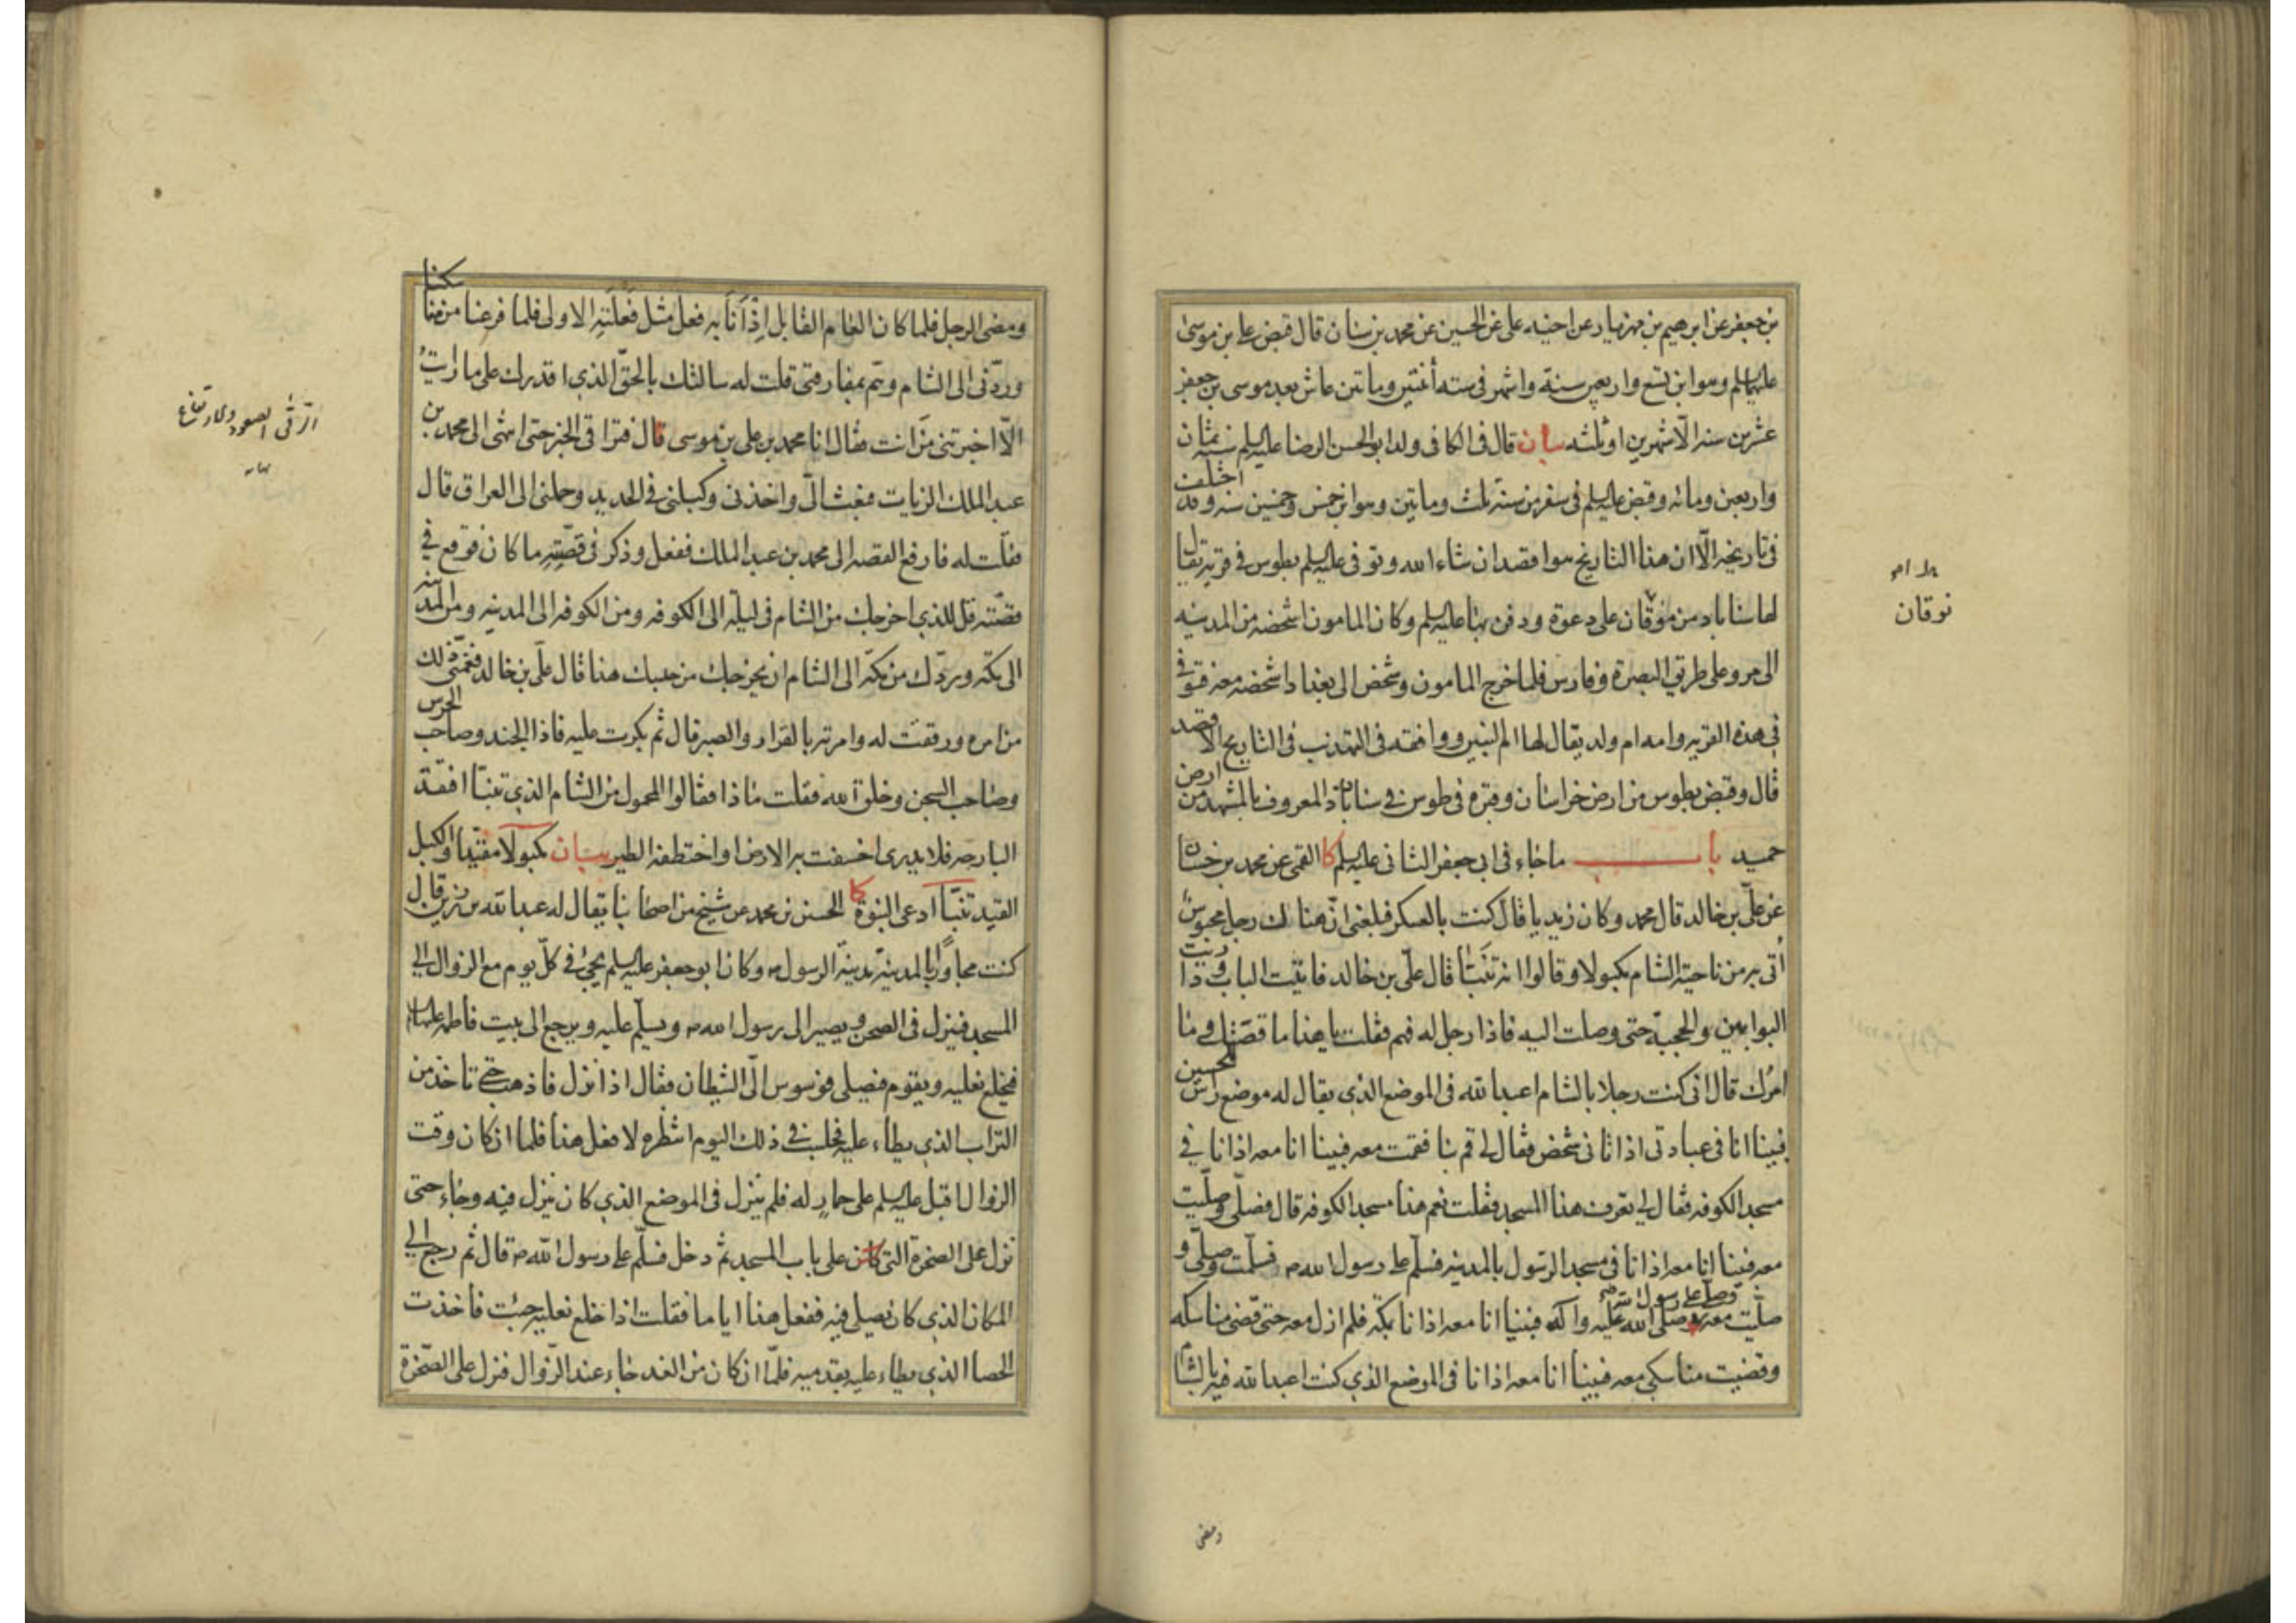 بن جعفر عن ابرهيم بن مهزيار عن اخيه على عن الحسين عن محمد بن سنان قال قبض على بن موسى
عليهما سلم وهو ابن تسع واربعين سنة واشهر في سنه أثنتين وماتين عاش بعد موسى بن جعفر
عشرين سنه الّا شهرين او ثلثه بيان قال في الكافي ولد ابو الحسن الرضا عليه سلم سنه ثمان
واربعين ومائه وقبض عليه سلم في سفر من سنة ثلث وماتين وهو ابن خمس وخمسين سنه وقد اختلف
في تاريخه الّا ان هذا التاريخ هو اقصد ان شاء الله وتوفى عليه سلم بطوس في قرية يقال
لها سناباد من موقان على دعوة ودفن بها عليه سلم وكان المامون اشخصه من المدينه
الى مرو على طريق البصرة وفارس فلما خرج المامون وشخص الى بغداد اشخصه معه فتوفى
في هذه القريه وامه ام ولد يقال لها ام البنين ووافقه في التهذيب في التاريخ الاقصد
قال وقبض بطوس من ارض خراسان وقبره في طوس في سناباد المعروف بالمشهد من ارض
حميد باب ما جاء في ابي جعفر الثاني عليه سلم كا القمي عن محمد بن حسان
عن علّي بن خالد قال محمد وكان زيديا قال كنت بالعسكر فبلغني انّ هناك رجل محبوس
أتى به من ناحية الشام مكبولا وقالوا انه تنبّأ قال علّي بن خالد فاتيت الباب وداريت
البوابين والحجبة حتى وصلت اليه فاذا رجل له فهم فقلت يا هذا ما قصّتك وما
امرك قال انى كنت رجلا بالشام اعبد الله في الموضع الذي يقال له موضع راس الحسين
فبينا انا في عبادتي اذ اتاني شخص فقال لي قم بنا فقمت معه فبينا انا معه اذا انا في
مسجد الكوفه فقال لي تعرف هذا المسجد فقلت نعم هذا مسجد الكوفه قال فصلّى وصلّيت
معه فبينا انا معه اذا انا في مسجد الرسول بالمدينه فسلّم على رسول الله ص فسلّمت وصلّى و
صلّيت معه وصلّى على رسول الله صلى الله عليه واله فبينا انا معه اذا انا بمكّة فلم ازل معه حتى قضى مناسكه
وقضيت مناسكي معه فبينا انا معه اذا انا في الموضع الذي كنت اعبد الله فيه بالشام
ومضى
نوقان
ومضى الرجل فلما كان العام القابل اذا أنا به فعل مثل فعلته الاولى فلما فرغنا من مناسكنا
وردّني الى الشام وهمّ بمفارقتي قلت له سالتك بالحقّ الذي اقدرك على ما رايت
الّا اخبرتني من انت فقال انا محمد بن على بن موسى قال فتراقى الخبر حتى انتهى الى محمد بن
عبد الملك الزيات فبعث الّي واخذني وكبلني في الحديد وحملني الى العراق قال
فقلت له فارفع القصه الى محمد بن عبد الملك ففعل وذكر في قصّته ما كان فوقع في
قصّته قل للذي اخرجك من الشام في ليلة الى الكوفه ومن الكوفه الى المدينه ومن المدينه
الى مكّه وردّك من مكّه الى الشام ان يخرجك من حبسك هذا قال علّي بن خالد فغمّني ذلك
من امره ورققت له وامرته بالقرار والصبر قال ثم بكرت عليه فاذا الجند وصاحب الحرس
وصاحب السجن وخلق الله فقلت ما ذا فقالوا المحمول من الشام الذي تنبّأ افتقد
البارحه فلا يدرى اخسفت به الارض او اختطفه الطير بيان مكبولا مقيّدا والكبل
القيد تنبّأ ادعى النبوة كا الحسين بن محمد عن شيخ من اصحابنا يقال له عبد الله بن رزين قال
كنت مجاورًا بالمدينة مدينة الرسول ص وكان ابو جعفر عليه سلم يجئ في كلّ يوم مع الزوال الى
المسجد فينزل في الصحن ويصير الى رسول الله ص ويسلّم عليه ويرجع الى بيت فاطمه عليها سلام
فيخلع نعليه ويقوم فيصلى فوسوس الّي الشيطان فقال اذا نزل فاذهب حتى تاخذ من
التراب الذي يطاء عليه فجلست في ذلك اليوم انتظره لافعل هذا فلما ان كان وقت
الزوال اقبل عليه سلم على حمار له فلم ينزل في الموضع الذي كان ينزل فيه وجاء حتى
نزل على الصخرة التي كانت على باب المسجد ثم دخل فسلّم على رسول الله ص قال ثم رجع الى
المكان الذي كان يصلى فيه ففعل هذا اياما فقلت اذا خلع نعليه جئت فاخذت
الحصا الذي يطاء عليه بقدميه فلمّا ان كان من الغد جاء عند الزّوال فنزل على الصّخرة
الترقى الصعود والارتفاع